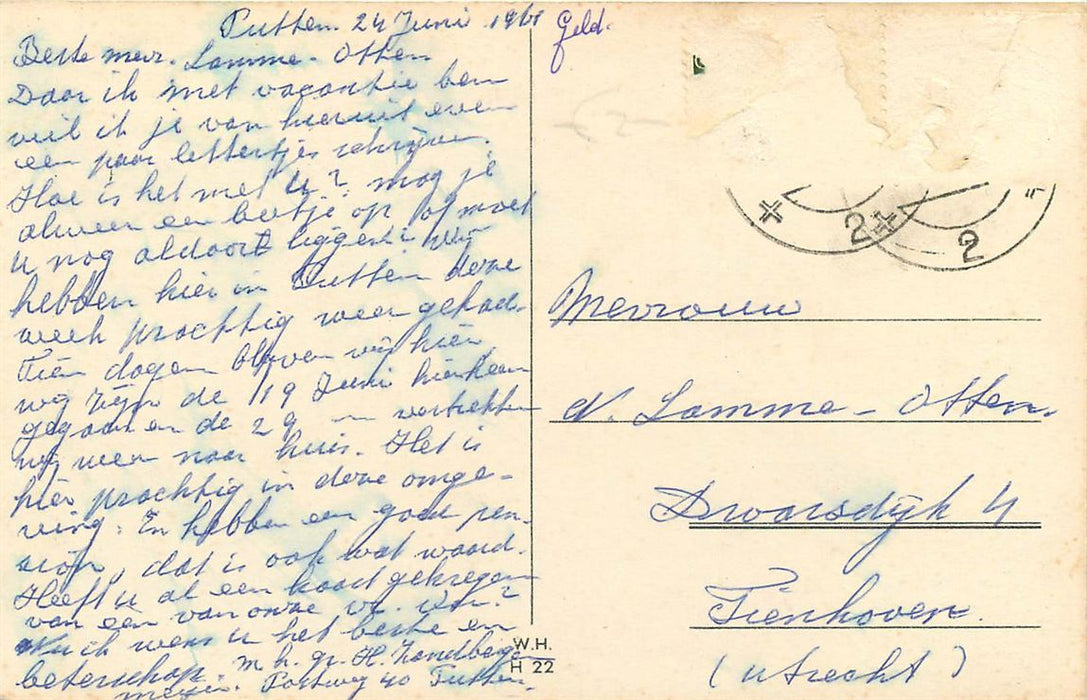 Putten. 24 Juni 1961
Beste mevr. Lamme - Otten
Daar ik met vacantie ben
wil ik je van hieruit even
een paar lettertjes schrijven.
Hoe is het met U? mag je
alweer een beetje op of moet
u nog aldoor liggen? Wij
hebben hier in Putten deze
week prachtig weer gehad.
Tien dagen blijven wij hier
wij zijn de 19 Juni hierheen
gegaan en de 29 - vertrekken
wij weer naar huis. Het is
hier prachtig in deze omge-
ving. En hebben een goed pen-
sion, dat is ook wat waard.
Heeft u al een kaart gekregen
van een van onze
Nu ik wens u het beste en
beterschap. m. h. gr. H.
Postweg 40 Putten.
W.H.
H 22
Geld.
2
2
Mevrouw
N. Lamme - Otten.
Dwarsdijk 4
Tienhoven.
(Utrecht)